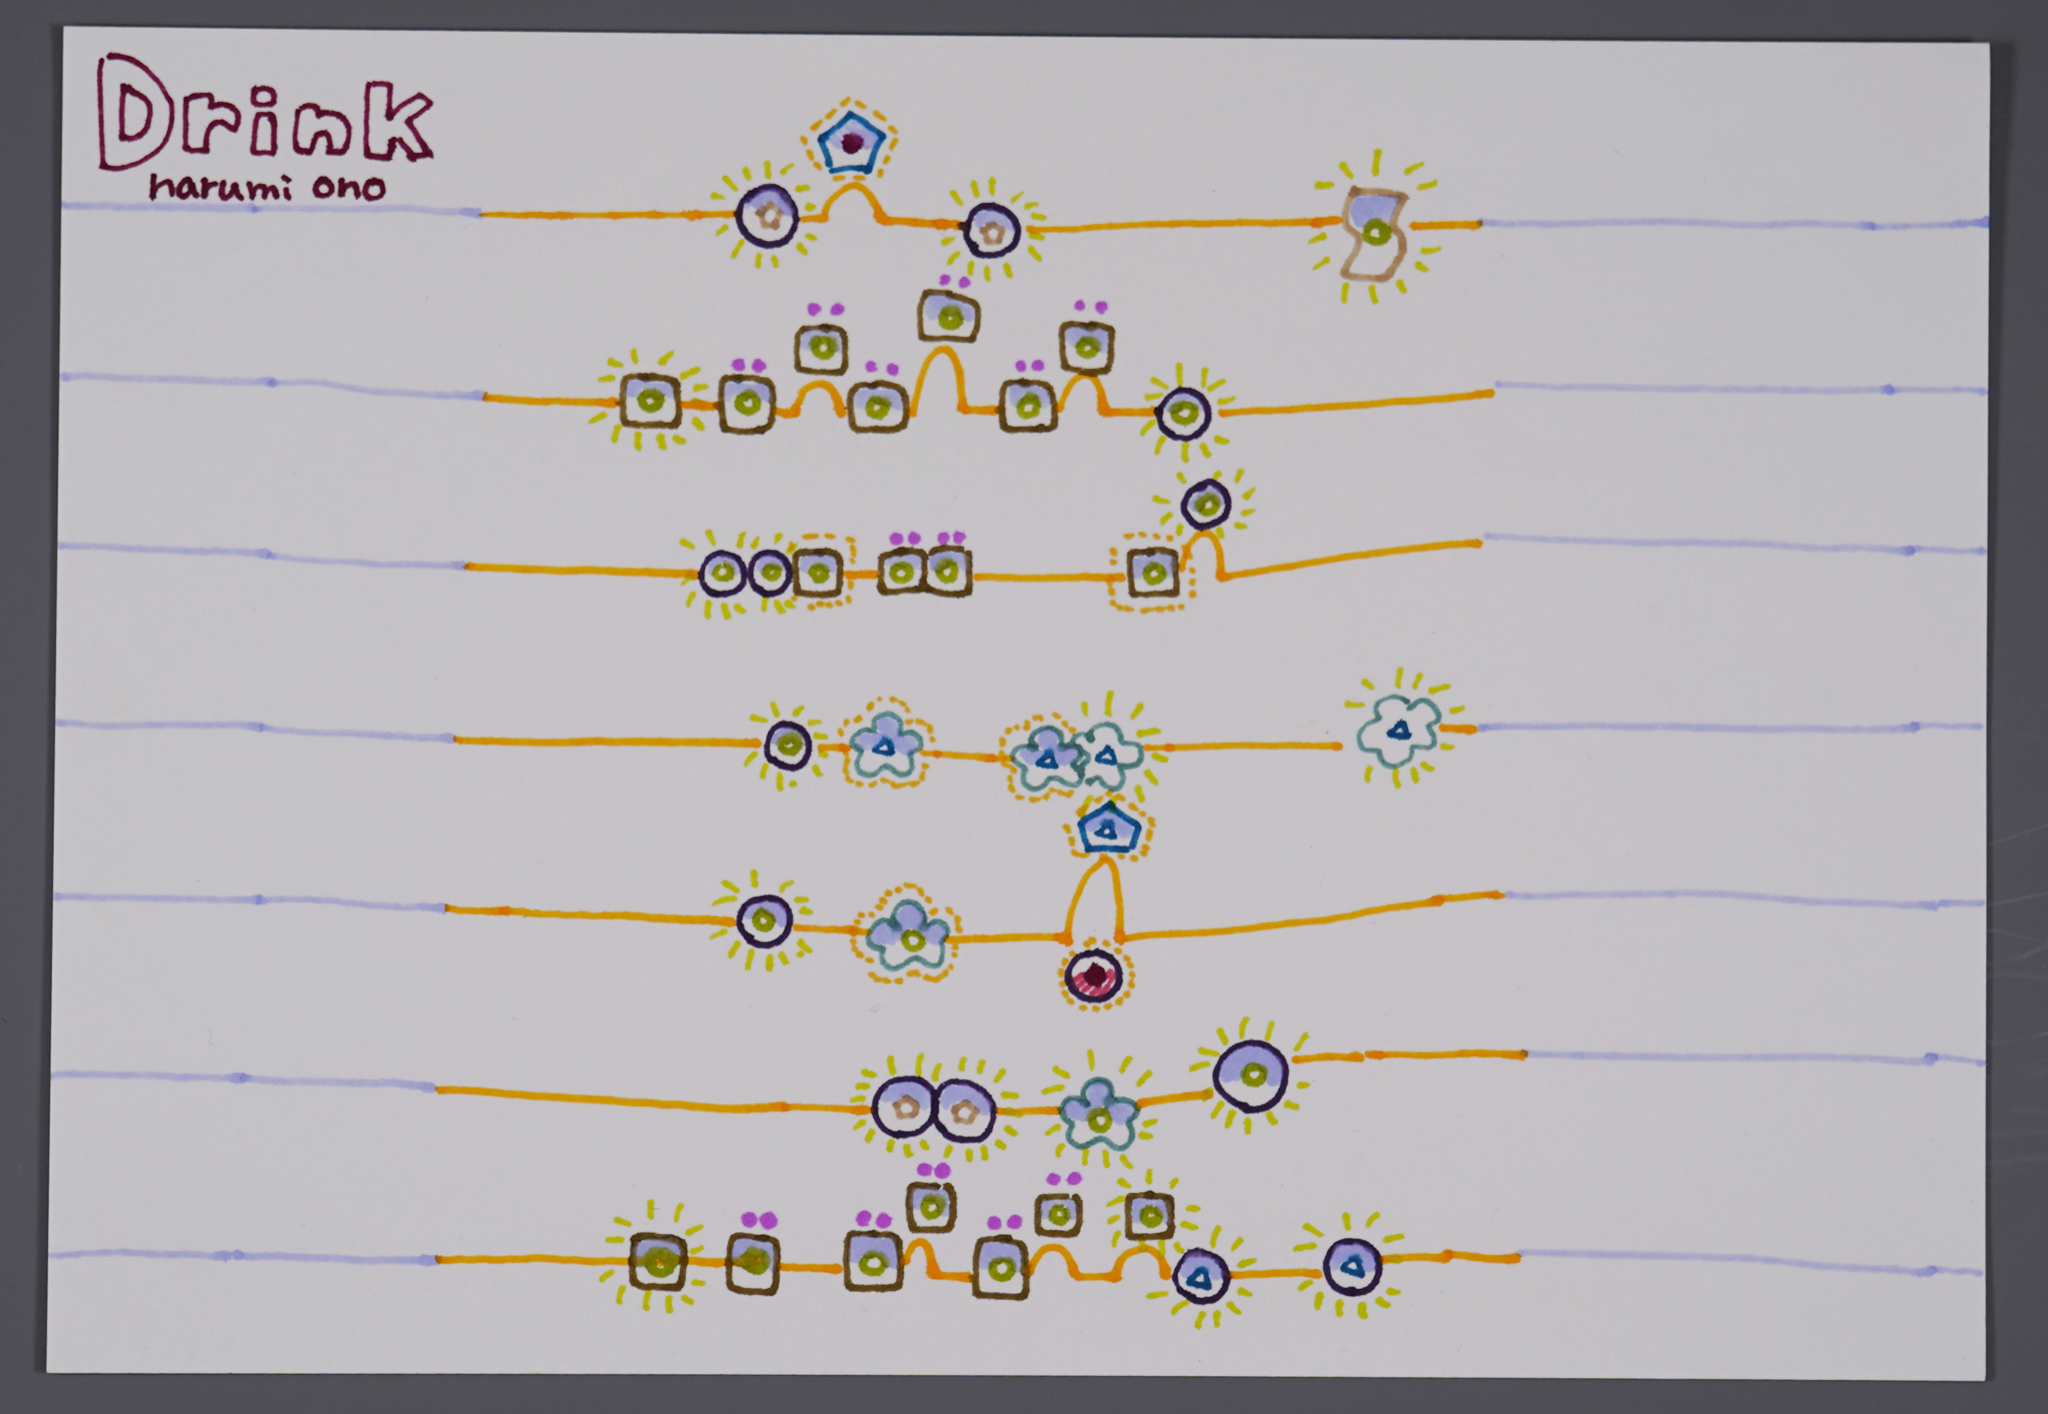 Drink
harumi ono